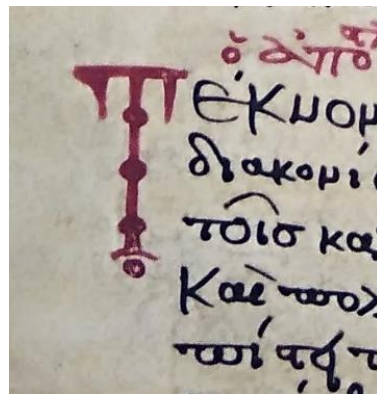 ὁ ἀπο
Τέκνον
διακονί
τοῖσ κα
Καὶ πολ
πί τῇ